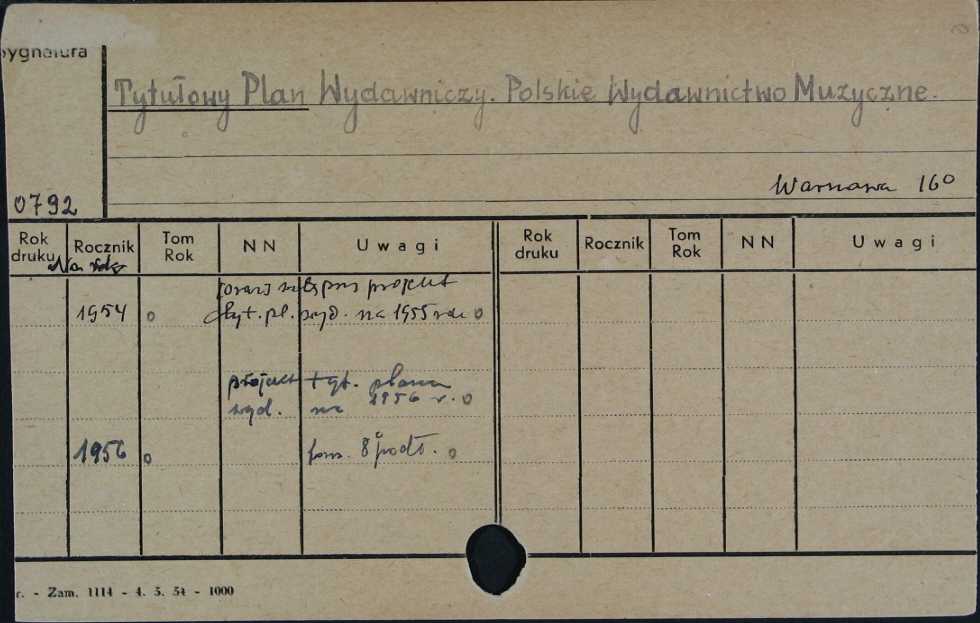 Sygnatura
Tytułowy Plan Wydawniczy. Polskie Wydawnictwo Muzyczne.
Warszawa 16°
0792
Rok druku Rocznik Tom Rok NN Uwagi Rok druku Rocznik Tom Rok NN Uwagi
Na rok
oraz wstępny projekt
1954 tyt. pl. wyd. na 1955 rok
projekt tyt. planu
wyd. na 1956 r.
1956 8° podł.
r. - Zam. 1114 - 4. 3. 54 - 1000